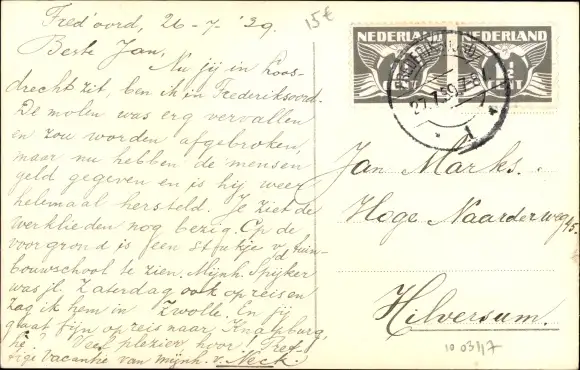 Fred'oord, 26-7-'39.
15€
Beste Jan,
Nu jij in Loos-
drecht zit, ben ik in Frederiksoord.
De molen was erg vervallen
en zou worden afgebroken,
maar nu hebben de mensen
geld gegeven en is hij weer
helemaal hersteld. Je ziet de
werklieden nog bezig. Op de
voorgrond is een stukje v/d tuin-
bouwschool te zien. Mijnh. Spijker
was jl. Zaterdag ook op reis en
zag ik hem in Zwolle. En jij
gaat fijn op reis naar
hè! Veel plezier hoor Pret-
tige Vacantie van Mijnh. v. Neck.
NEDERLAND
NEDERLAND
FREDERIKSOORD
27.7.39.7-8
1
Jan Marks.
Hoge Naarderweg 95.
Hilversum.
10 03117